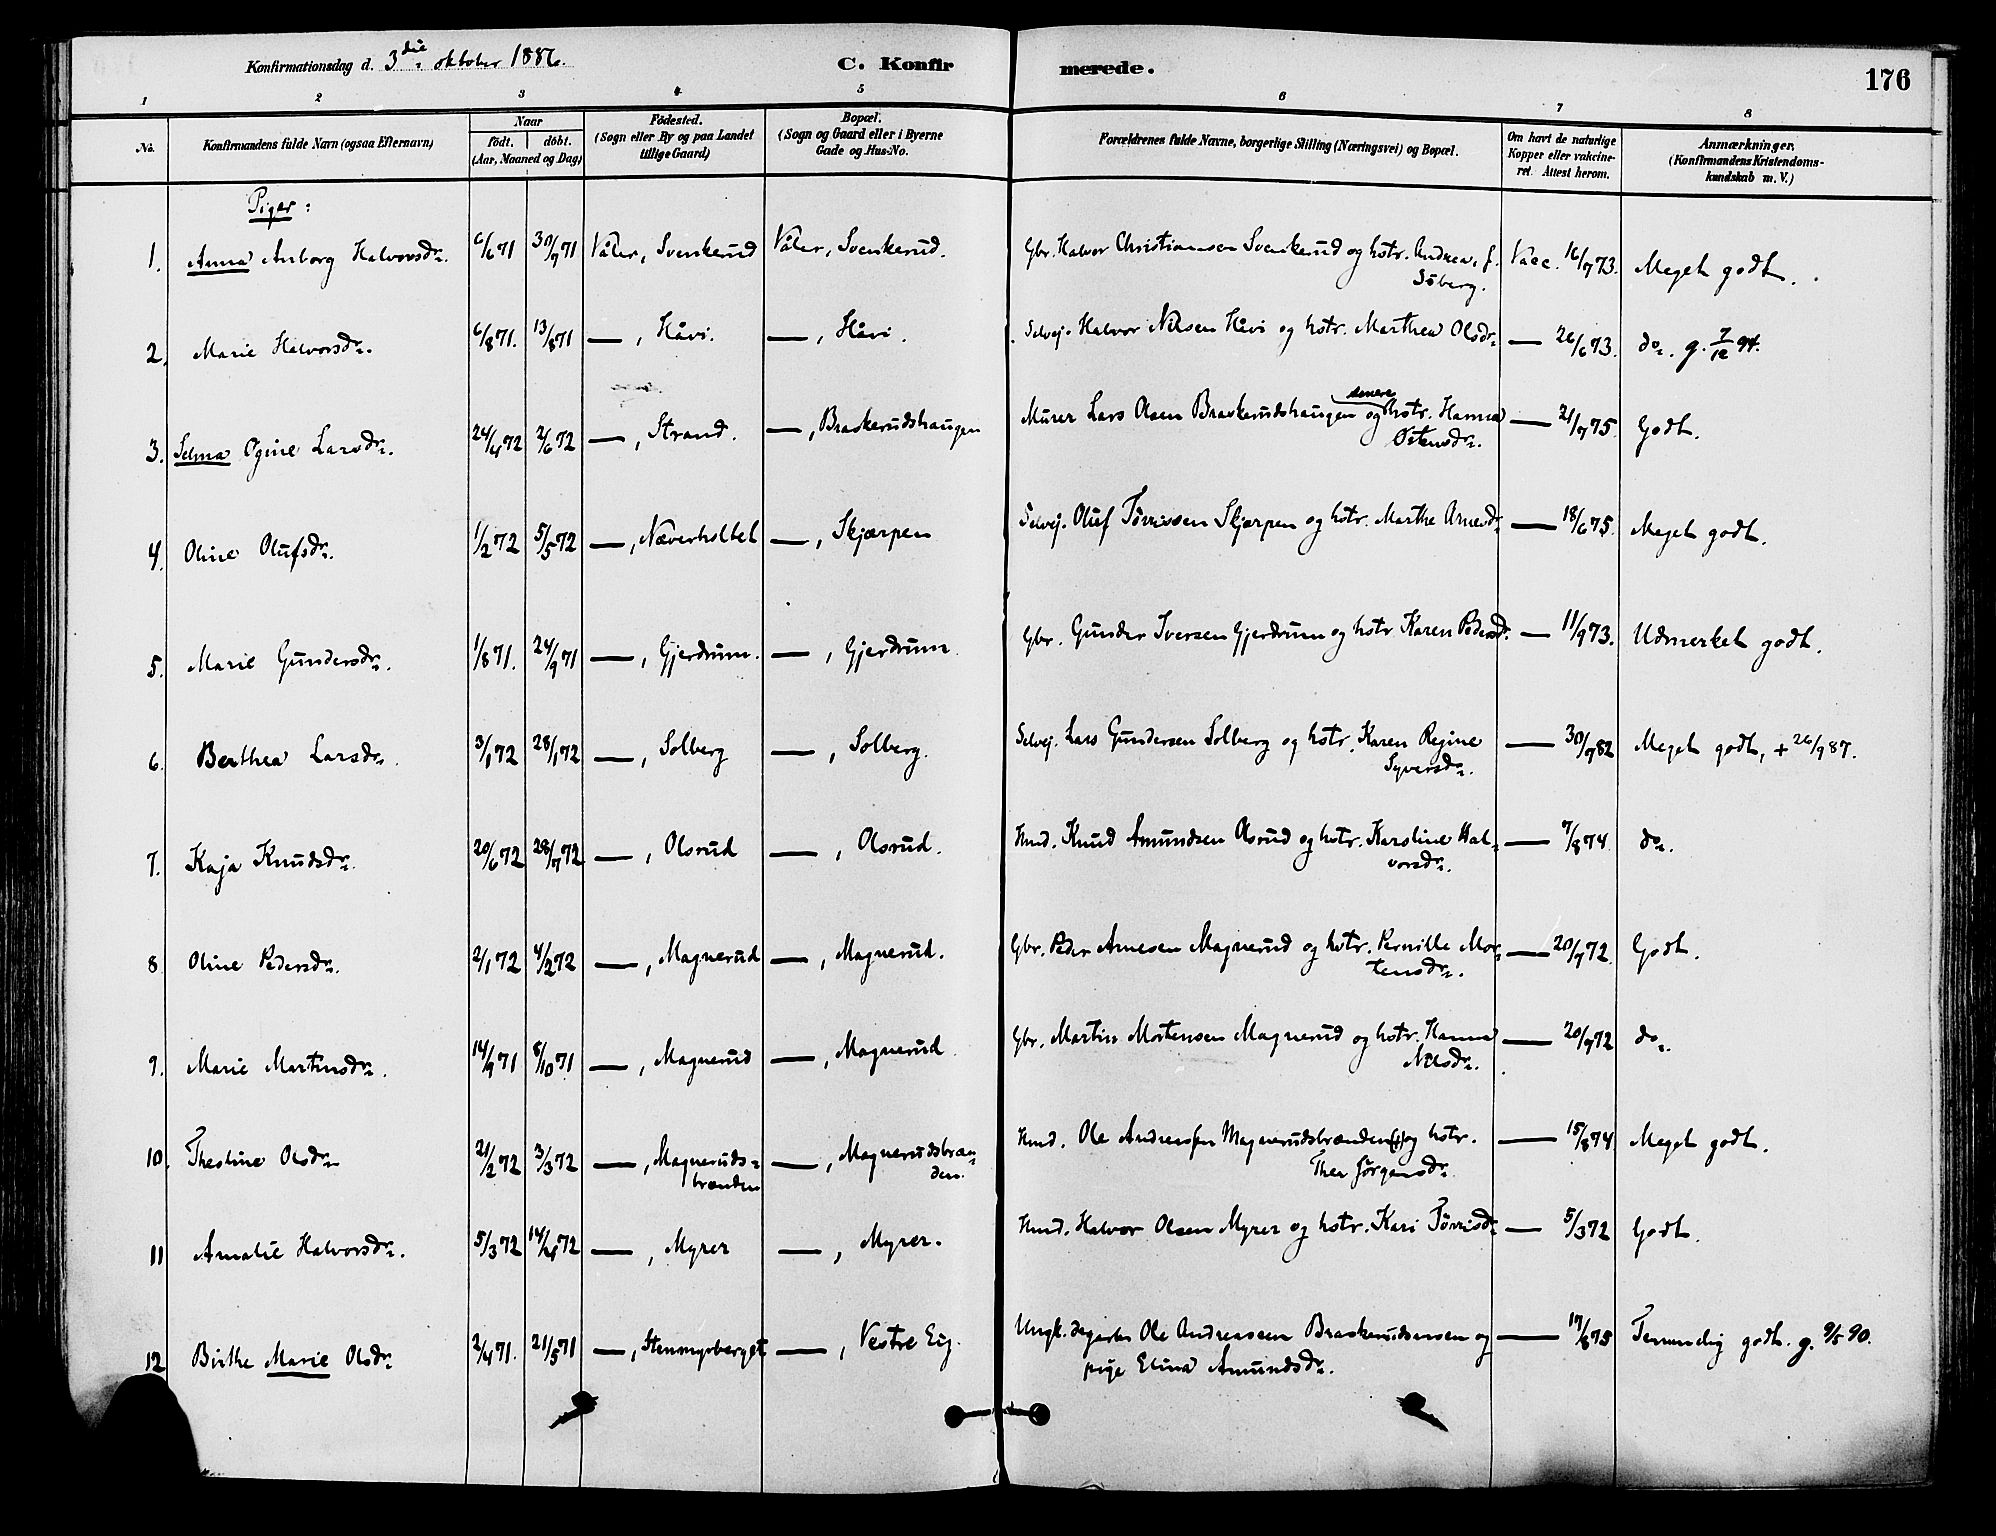 Konfirmationsdag d. 3die oktober 1886.
C. Konfirmerede.
176
1 2 3 4 5 6 7 8
No.
Konfirmandens fulde Navn (ogsaa Efternavn)
Naar
født. døbt.
(Aar, Maaned og Dag)
Fødested.
(Sogn eller By og paa Landet
tillige Gaard)
Bopæl.
(Sogn og Gaard eller i Byerne
Gade og Hus-No.
Forældrenes fulde Navne, borgerlige Stilling (Næringsvei) og Bopæl.
Om havt de naturlige
Kopper eller vakcine-
ret. Attest herom.
Anmærkninger.
(Konfirmandens Kristendoms-
kundskab m. V.)
Piger:
1. Anna Anborg Halvorsdr. 6/671 30/771 Våler, Svenkerud Våler, Svenkerud. Gbr. Halvor Christiansen Svenkerud og hstr. Andrea, f. Vacc. 16/773. Meget godt.
Söberg.
2. Marie Halvorsdr. 6/871. 13/871 —, Håvi. —, Håvi. Selvej. Halvor Nilsen Håvi og hstr. Marthea Olsdr. — 26/673. do. g. 7/12 94.
3. Selma Ogine Larsdr. 24/472 2/672 —, Strand. —, Braskerudshaugen Murer Lars Olsen Braskerudshaugen og senere hstr. Hanna — 21/775. Godt.
Østensdr.
4. Oline Olufsdr. 1/272 5/572 —, Næverholtet —, Skjærpen Selvej. Oluf Tørrissen Skjærpen og hstr. Marthe Arnesdr. — 18/675. Meget godt.
5. Marie Gundersdr. 1/871. 24/971 —, Gjerdrum. —, Gjerdrum. Gbr. Gunder Iversen Gjerdrum og hstr. Karen Pedersdr. — 11/973. Udmerket godt.
6. Berthea Larsdr. 3/172 28/172 —, Solberg —, Solberg. Selvej. Lars Gundersen Solberg og hstr. Karen Regine — 30/782 Meget godt, + 26/787.
Syversdr.
7. Kaja Knudsdr. 20/672 28/772 —, Olsrud —, Olsrud. Hmd. Knud Amundsen Olsrud og hstr. Karoline Hal- — 7/874. do.
vorsdr.
8 Oline Pedersdr. 2/172 4/272 —, Magnerud —, Magnerud. Gbr. Peder Arnesen Magnerud og hstr. Pernille Mor- — 20/972. Godt.
tensdr.
9. Marie Martinsdr. 14/971 8/1071 —, Magnerud —, Magnerud. Gbr. Martin Mortensen Magnerud og hstr. Hanna — 20/972 do.
Nilsdr.
10. Theoline Olsdr. 21/272 3/372 —, Magneruds- —, Magnerudsbræn- Hmd. Ole Andreassen Magnerudsbrænden (+) og hstr. — 15/874. Meget godt.
brænden den. Thea Jörgensdr.
11 Amalie Halvorsdr. 5/372 14/472 —, Myrer —, Myrer. Hmd. Halvor Olsen Myrer og hstr. Kari Tørrisdr. — 5/372 Godt.
12 Birthe Marie Olsdr. 2/471. 21/571 —, Stenmyrberget —, Vestre Eig. Ungk. Ole Andreassen Braskerudsæsen og — 17/675 Temmelig godt. g. 9/5 90.
pige Elina Amundsdr.